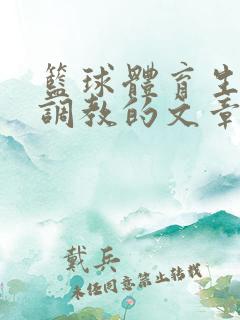 籃球體育生
調教的文章
戴兵
未經同意禁止轉載